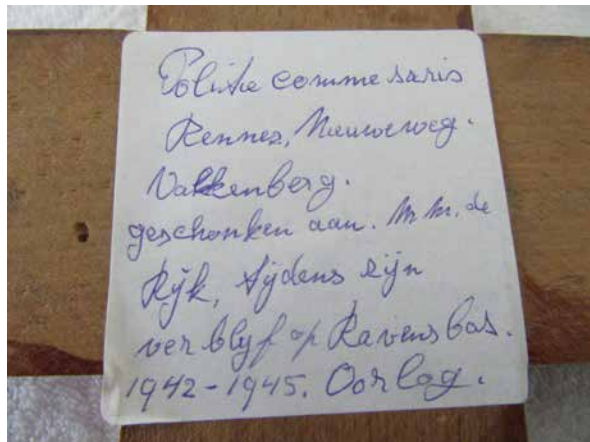 Politie commesaris
Rennes, Nieuweweg.
Valkenberg.
geschonken aan. M M. de
Rijk, tijdens zijn
verblyf op Ravensbos.
1942-1945. Oorlog.